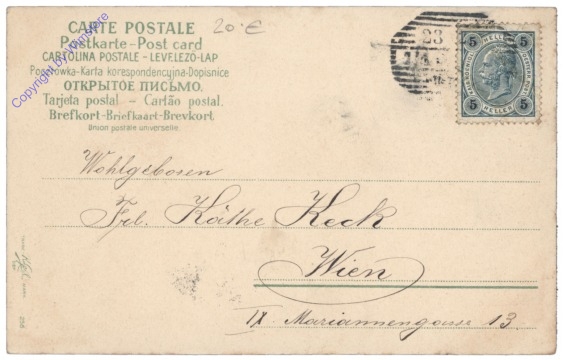 CARTE POSTALE
Postkarte-Post card
CARTOLINA POSTALE-LEVELEZŐ-LAP
Pocztówka-Karta korespondencyjna-Dopisnice
ОТКРЫТОЕ ПИСЬМО.
Tarjeta postal - Cartão postal.
Brefkort-Briefkaart-Brevkort.
Union postale universelle
20.-€
Copyright by WinStore
23
5 HELLER 5
5 HELLER 5
Wohlgeboren
Frl. Käthe Keck
Wien
IX. Mariannengasse 13